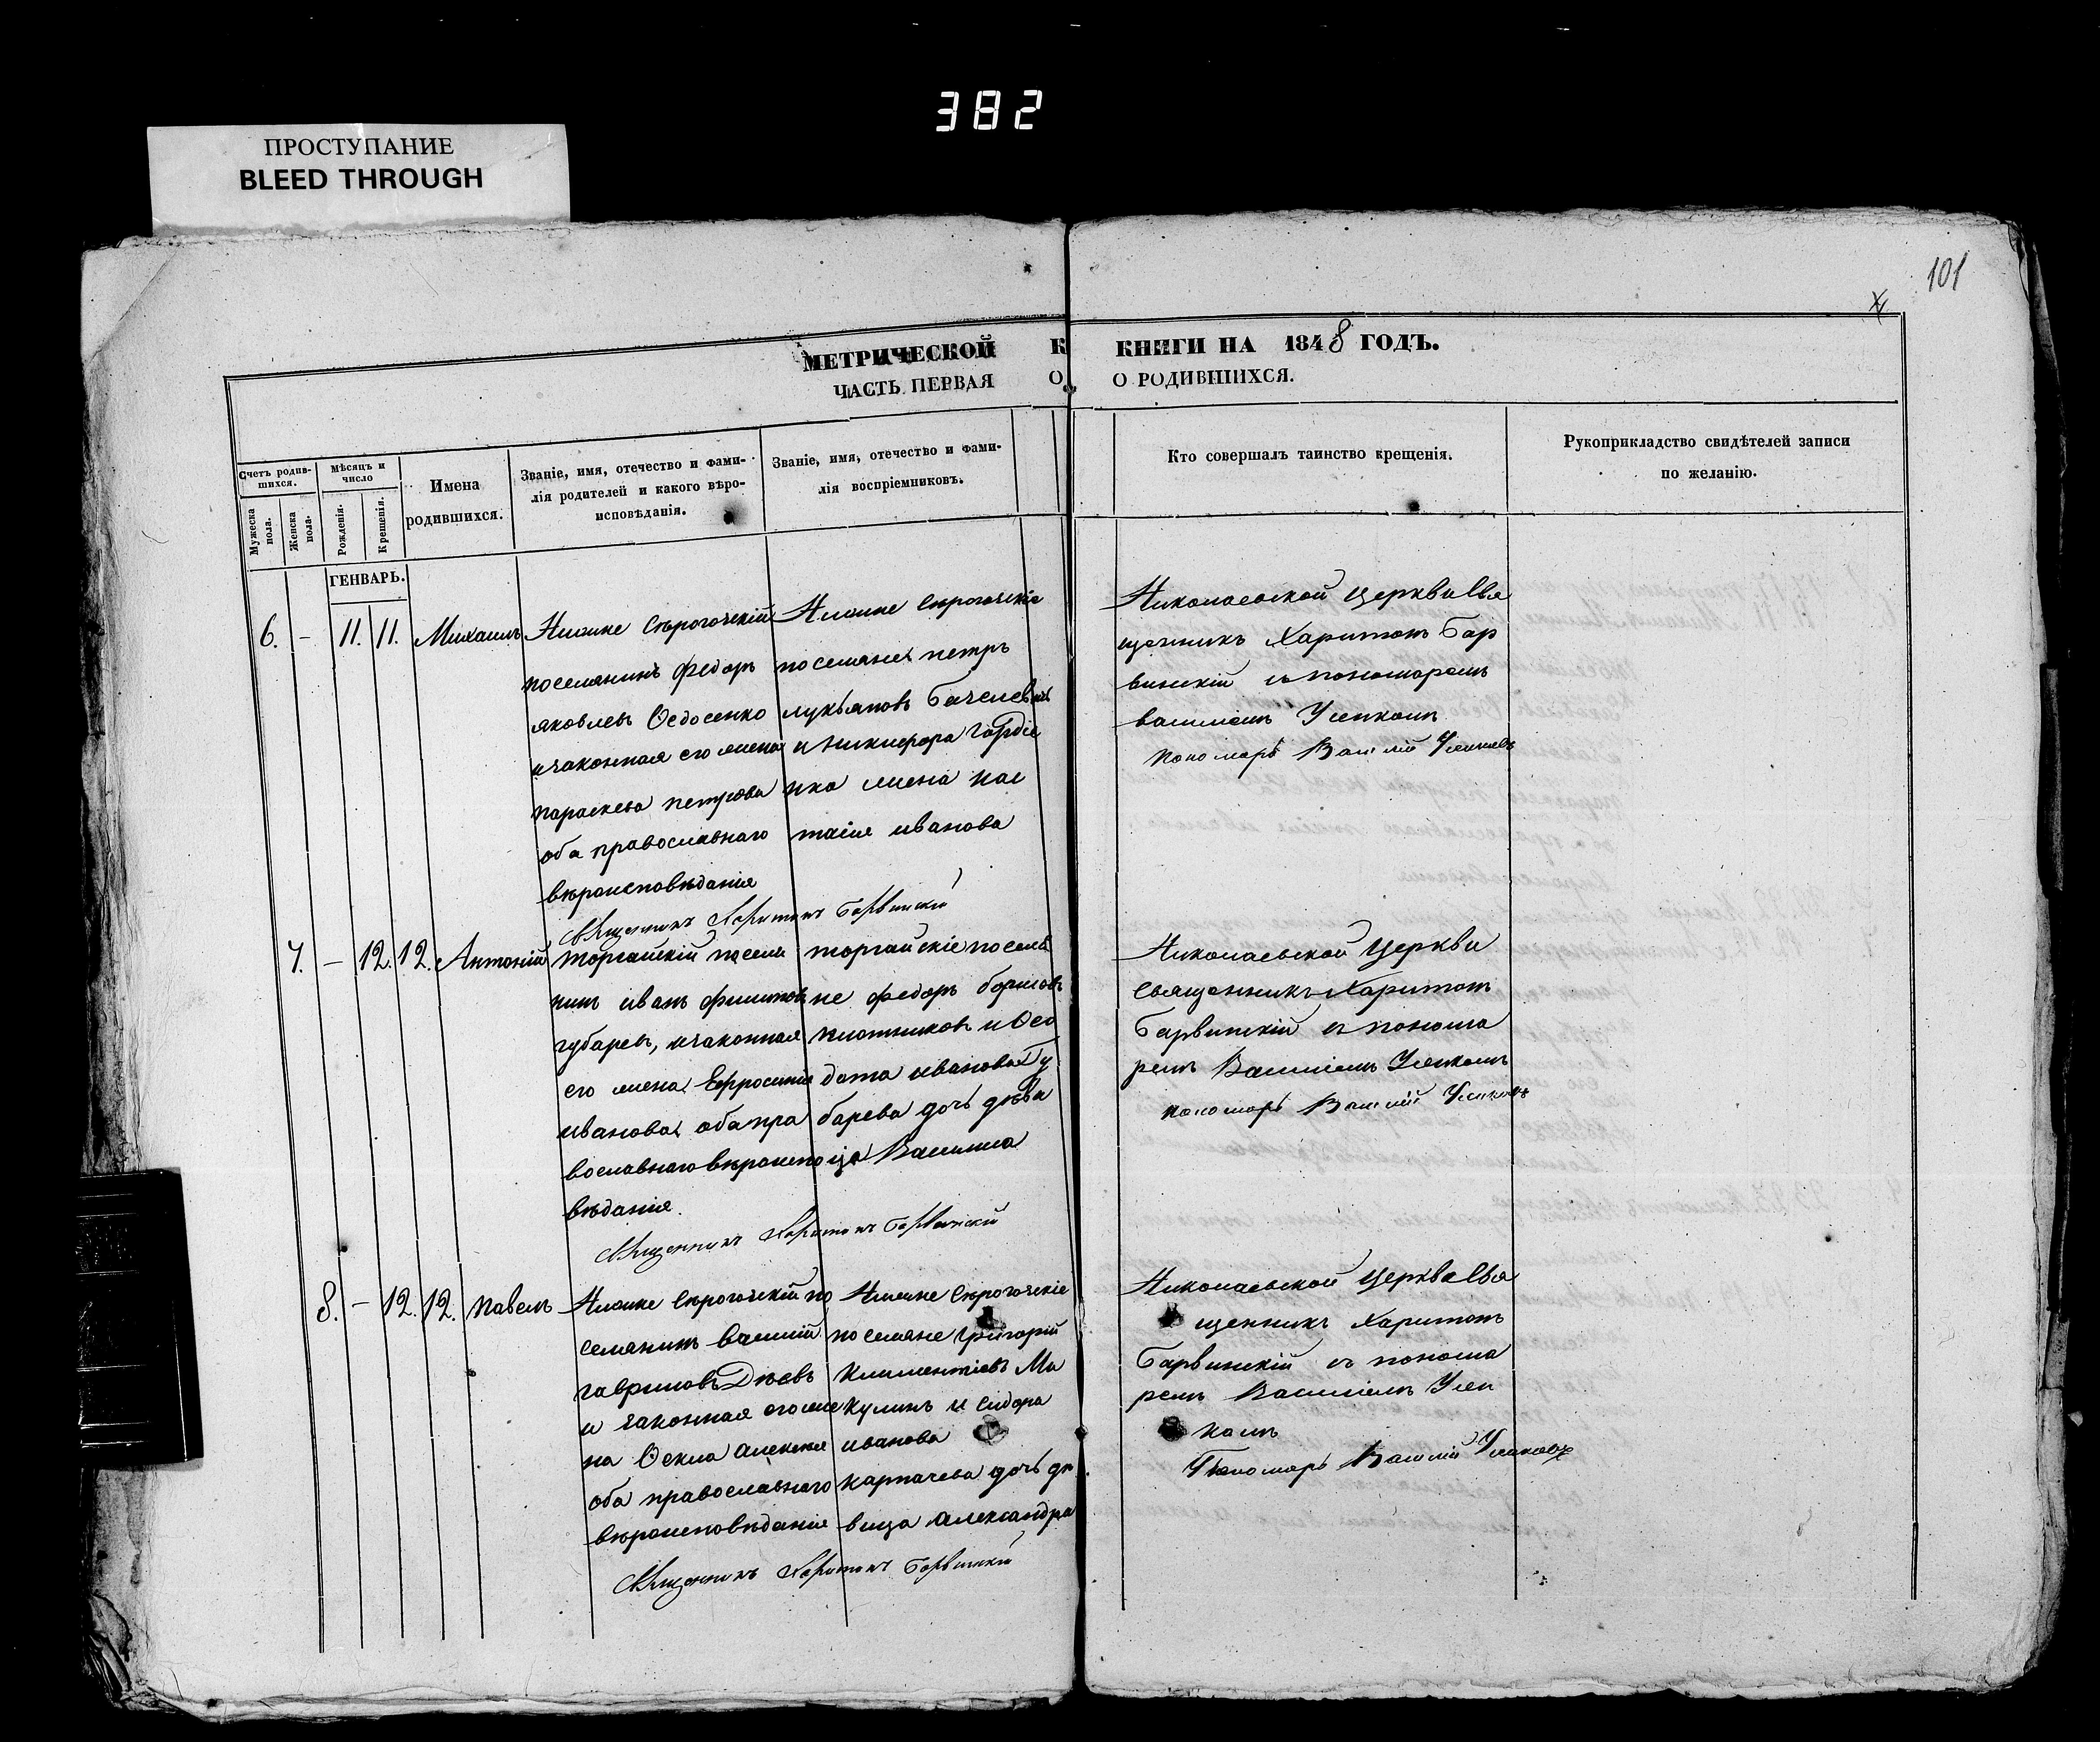 382
ПРОСТУПАНИЕ
BLEED THROUGH
101
МЕТРИЧЕСКОЙ К КНИГИ НА 1848 ГОДЪ.
ЧАСТЬ ПЕРВАЯ О О РОДИВШИХСЯ.
Счетъ родив-
шихся.
Мужеска
пола.
Женска
пола.
Мѣсяцъ и
число
Рожденія.
Крещенія.
Имена
родившихся.
Званіе, имя, отечество и фами-
лія родителей и какого вѣро-
исповѣданія.
Званіе, имя, отечество и фами-
лія воспріемниковъ.
Кто совершалъ таинство крещенія.
Рукоприкладство свидѣтелей записи
по желанію.
ГЕНВАРЬ.
6. - 11. 11. Михаилъ
Нижне Сѣрогозскій
поселянинъ Федоръ
яковлевъ Ѳедосенко
и законная его жена
параскева петрова
оба православнаго
вѣроисповѣданія
Нижне Сѣрогозскіе
поселяне петръ
лукьяновъ
и никифора Гордіе
нка жена нас
тасія иванова
Священникъ Харитонъ Барвинскій
Николаевской Церкви Свя
щенникъ Харитонъ Бар
винскій съ пономаремъ
василіемъ
пономарь Василій
7. - 12. 12. Антоній
торгайскій поселя
нинъ иванъ филиповъ
губаревъ, и законная
его жена Ефросинія
иванова оба пра
вославнаго вѣроиспо
вѣданія.
торгайскіе поселя
не федоръ борисовъ
плотниковъ и Ѳео
дота иванова Гу
барева дочь дѣви
ца Василиса
Священникъ Харитонъ Барвинскій
Николаевской Церкви
Священникъ Харитонъ
Барвинскій съ понома
ремъ Василіемъ
пономарь Василій
8. - 12. 12. павелъ
Нижне Сѣрогозскій по
селянинъ василій
гавриловъ Дѣевъ
и законная его же
на Ѳекла алексѣя
оба православнаго
вѣроисповѣданія
Нижне Сѣрогозскіе
поселяне григорій
климентіевъ Ми
кулинъ и сидора
иванова
карпачева дочь дѣ
вица александра
Священникъ Харитонъ Барвинскій
Николаевской Церкви Свя
щенникъ Харитонъ
Барвинскій съ понома
ремъ Василіемъ
Пономарь Василій